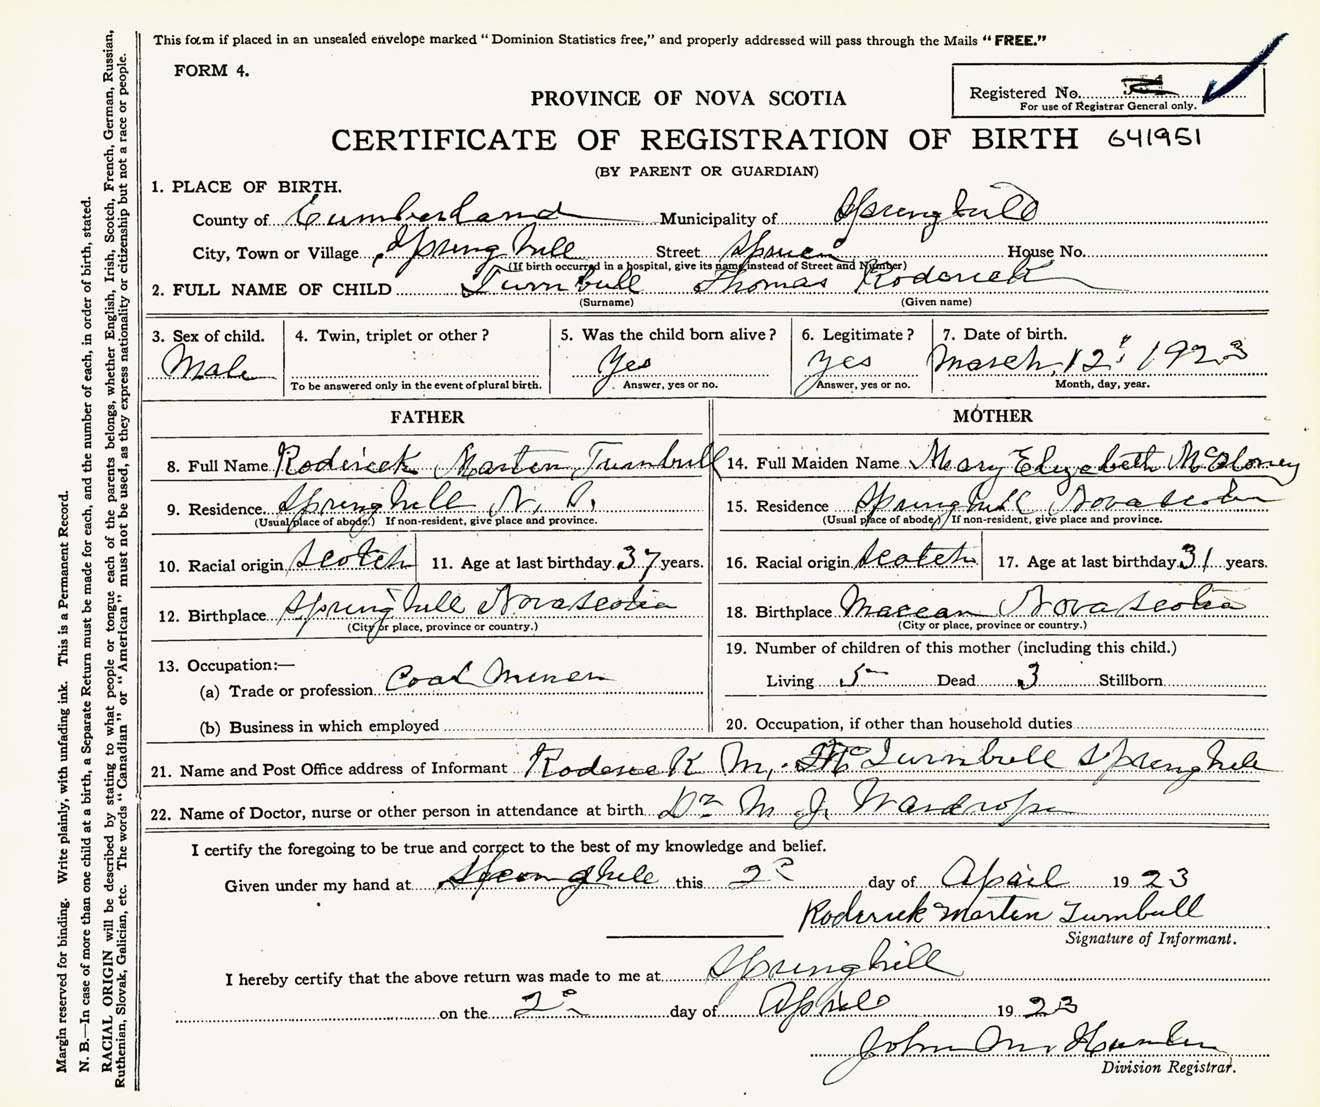 This form if placed in an unsealed envelope marked "Dominion Statistics free," and properly addressed will pass through the Mails "FREE."
FORM 4.
Registered No.
For use of Registrar General only.
PROVINCE OF NOVA SCOTIA
CERTIFICATE OF REGISTRATION OF BIRTH 641951
(BY PARENT OR GUARDIAN)
1. PLACE OF BIRTH.
County of Cumberland Municipality of Springhill
City, Town or Village Spring hill Street Spruce House No.
(If birth occurred in a hospital, give its name instead of Street and Number)
2. FULL NAME OF CHILD Turnbull Thomas Roderick
(Surname) (Given name)
3. Sex of child. 4. Twin, triplet or other? 5. Was the child born alive? 6. Legitimate? 7. Date of birth.
Male Yes yes March 12 1923
To be answered only in the event of plural birth. Answer, yes or no. Answer, yes or no. Month, day, year.
FATHER MOTHER
8. Full Name Roderick Marten Turnbull 14. Full Maiden Name Mary Elizabeth McAloney
9. Residence Springhill N. S. 15. Residence Springhill Nova Scotia
(Usual place of abode.) If non-resident, give place and province. (Usual place of abode) If non-resident, give place and province.
10. Racial origin Scotch 11. Age at last birthday 37 years. 16. Racial origin Scotch 17. Age at last birthday 31 years.
12. Birthplace Springhill Nova Scotia 18. Birthplace Maccan Nova Scotia
(City or place, province or country.) (City or place, province or country.)
13. Occupation:— 19. Number of children of this mother (including this child.)
(a) Trade or profession Coal Miner Living 5 Dead 3 Stillborn
(b) Business in which employed 20. Occupation, if other than household duties
21. Name and Post Office address of Informant Roderick M. Turnbull Springhill
22. Name of Doctor, nurse or other person in attendance at birth Dr M. J. Wardrope
I certify the foregoing to be true and correct to the best of my knowledge and belief.
Given under my hand at Springhill this 2 day of April 1923
Roderick Marten Turnbull
Signature of Informant.
I hereby certify that the above return was made to me at Springhill
on the 2 day of April 1923
John M. Hunter
Division Registrar.
Margin reserved for binding. Write plainly, with unfading ink. This is a Permanent Record.
N. B.—In case of more than one child at a birth, a Separate Return must be made for each, and the number of each, in order of birth, stated.
RACIAL ORIGIN will be described by stating to what people or tongue each of the parents belongs, whether English, Irish, Scotch, French, German, Russian,
Ruthenian, Slovak, Galician, etc. The words "Canadian" or "American" must not be used, as they express nationality or citizenship but not a race or people.